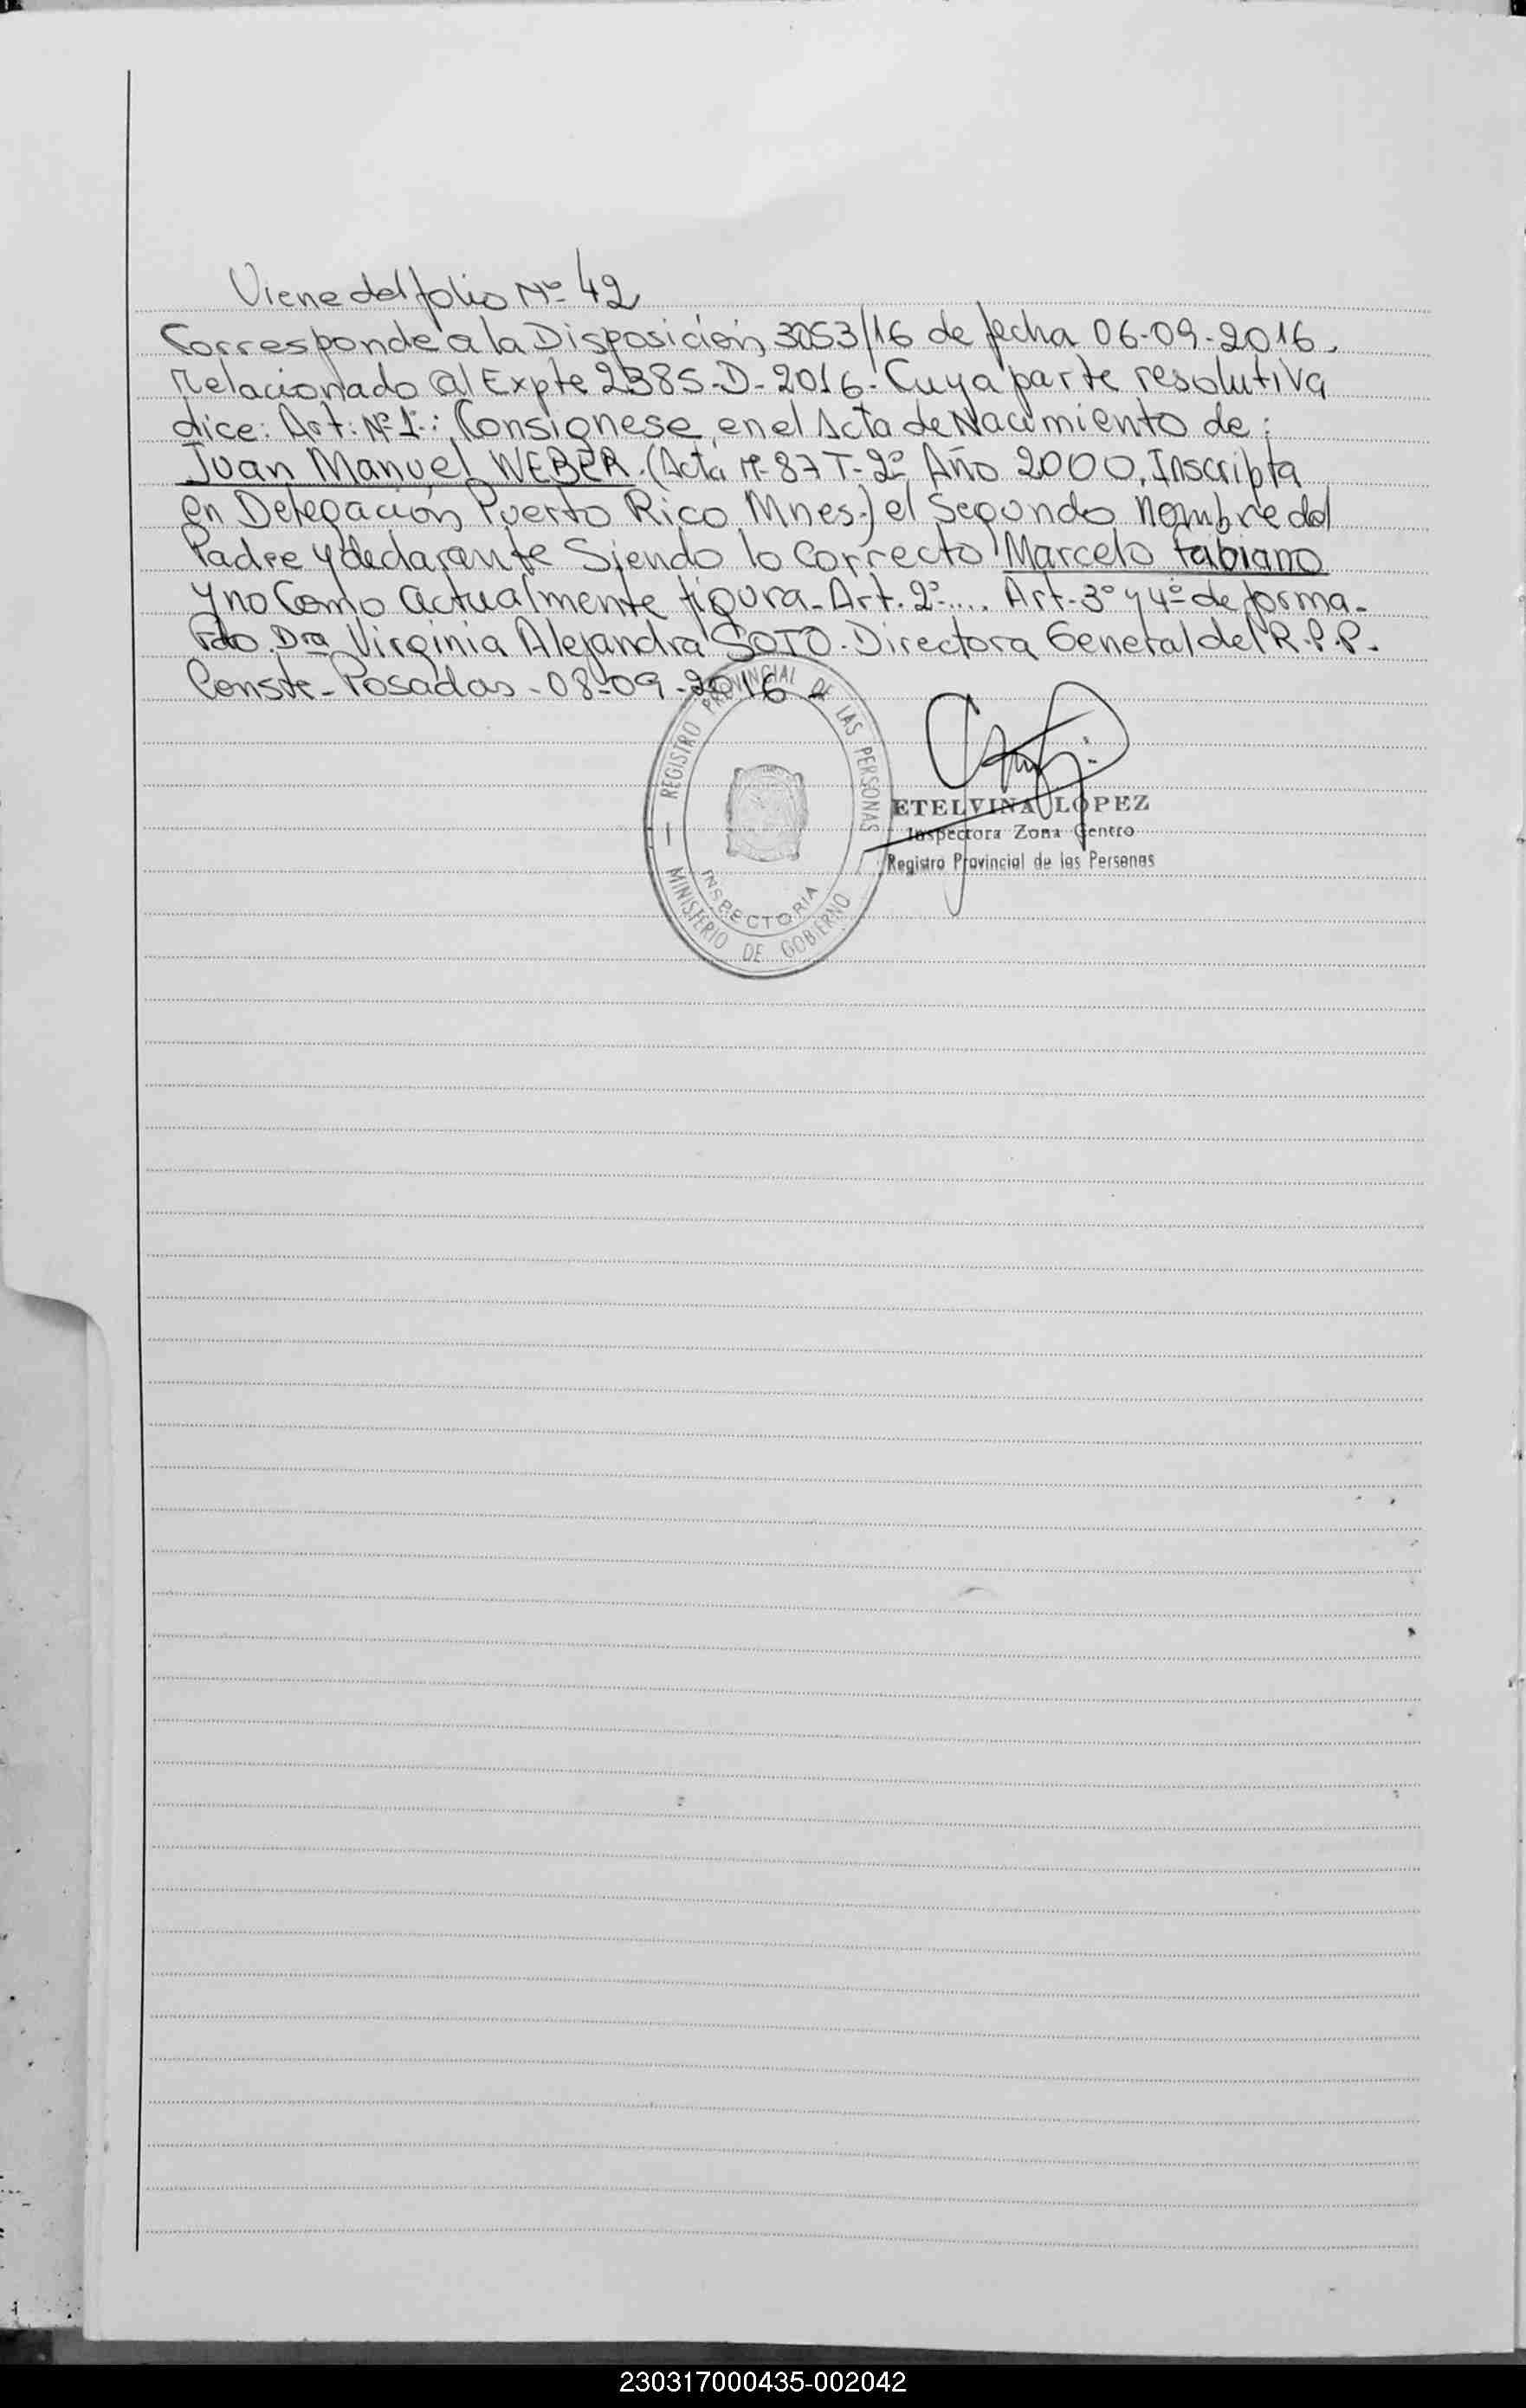 Viene del folio Nº 42
Corresponde a la Disposición 3053/16 de fecha 06-09-2016.
Relacionado al Expte 2385-D-2016- Cuya parte resolutiva
dice: Art: Nº 1º: Consignese en el Acta de Nacimiento de:
Juan Manuel WEBER. (Acta Nº 87 T-2º Año 2000. Inscripta
en Delegación Puerto Rico Mnes.) el Segundo nombre del
Padre y declarante Siendo lo Correcto Marcelo Fabiano
y no Como actualmente figura- Art. 2º.... Art- 3º y 4º de forma-
Fdo. Dra Virginia Alejandra SOTO. Directora General del R.P.P.
Conste- Posadas - 08-09-2016-
REGISTRO PROVINCIAL DE LAS PERSONAS
INSPECTORIA
MINISTERIO DE GOBIERNO
ETELVINA LOPEZ
Inspectora Zona Centro
Registro Provincial de las Personas
230317000435-002042